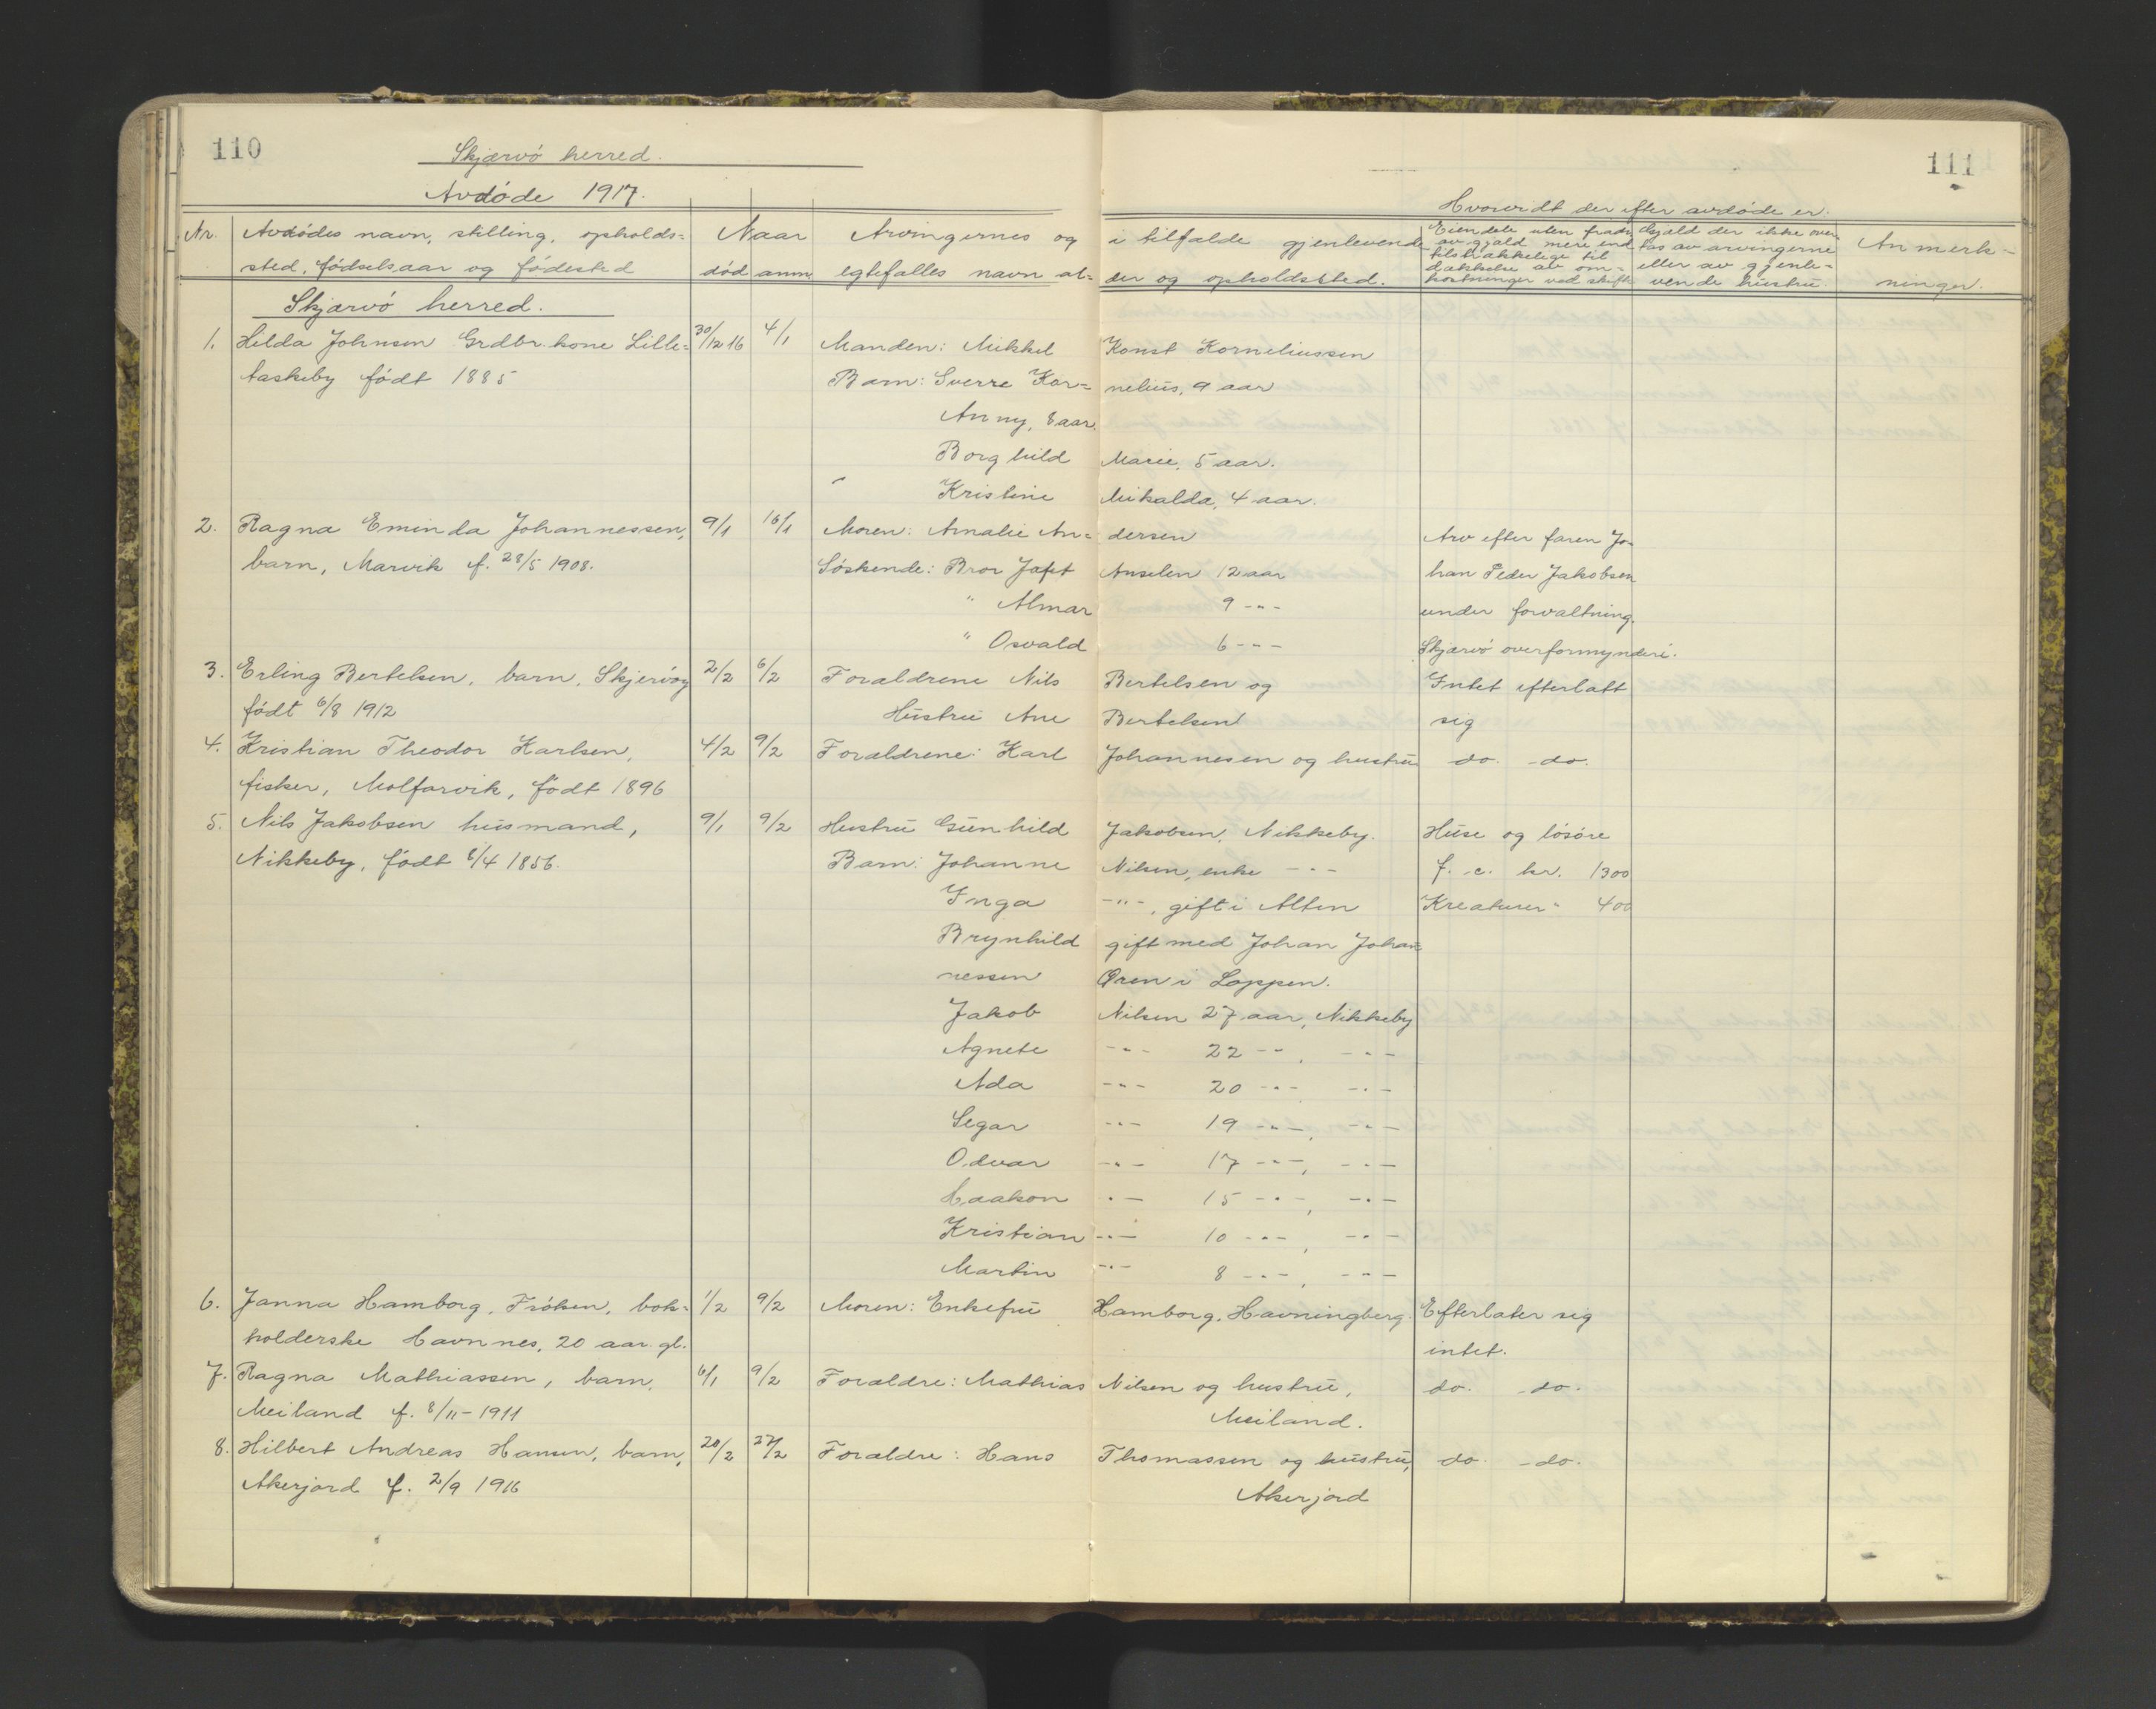 110
Skjærvö herred.
111
Avdöde 1917.
Hvorvidt der efter avdöde er.
Nr. Avdödes navn, stilling, opholds= Naar Arvingernes og i tilfælde gjenlevende Eiendele uten fradr. Gjæld der ikke over- Anmerk-
sted, födselsaar og födested död anm. egtefælles navn al= der og opholdssted. av gjæld mere end tilstrækkelige til dækkelse av om- kostninger ved skifte tas av arvingerne eller av gjenle- vende hustru. ninger.
Skjærvö herred.
1. Hilda Johnsen Grdbr. kone Lille= 30/12 16 4/1 Manden: Mikkel Konst Korneliussen
taskeby født 1885 Barn: Sverre Kor= nelius, 9 aar
Anny, 8 aar.
Borghild Marie, 5 aar.
" Kristine Mikalda, 4 aar.
2. Ragna Eminda Johannessen, 9/1 16/1 Moren: Amalie An= dersen Arv efter faren Jo-
barn, Marvik f. 28/5 1908. Söskende: Bror Jafet Anselm 12 aar han Peder Jakobsen
" Almar 9 -"- under forvaltning.
" Osvald 6 -"- Skjærvö overformynderi.
3. Erling Bertelsen, barn, Skjervöy 2/2 6/2 Forældrene Nils Bertelsen og Intet efterlatt
født 6/8 1912 Hustru Ane Bertelsen sig
4. Kristian Theodor Karlsen, 4/2 9/2 Forældrene: Karl Johannesen og hustru do. -do.
fisker, Molfarvik, födt 1896
5. Nils Jakobsen husmand, 9/1 9/2 Hustru Gunhild Jakobsen, Nikkeby. Huse og lösöre
Nikkeby, födt 8/4 1856. Barn: Johanne Nilsen, enke -"- f. c. kr. 1300
Inga -"-, gift i Alten Kreaturer " 400
Brynhild gift med Johan Johan=
nessen Øren i Loppen.
Jakob Nilsen 27 aar, Nikkeby
Agnete -"- 22 -"-, -"-
Ada -"- 20 -"- -"-
Segar -"- 19 -"-, -"-
Odvar -"- 17 -"-, -"-
Haakon -"- 15 -"-, -"-
Kristian -"- 10 -"-, -"-
Martin -"- 8 -"-, -"-
6. Janna Hamborg, Fröken, bok= 1/2 9/2 Moren: Enkefru Hamborg, Havningberg. Efterlater sig
holderske Havnnes, 20 aar gl. intet.
7. Ragna Mathiassen, barn, 6/1 9/2 Forældre: Mathias Nilsen og hustru, do. -do.
Meiland f. 8/11-1911 Meiland.
8. Hilbert Andreas Hansen, barn, 20/2 27/2 Forældre: Hans Thomassen og hustru, do. -do.
Akerjord f. 2/9 1916 Akerjord